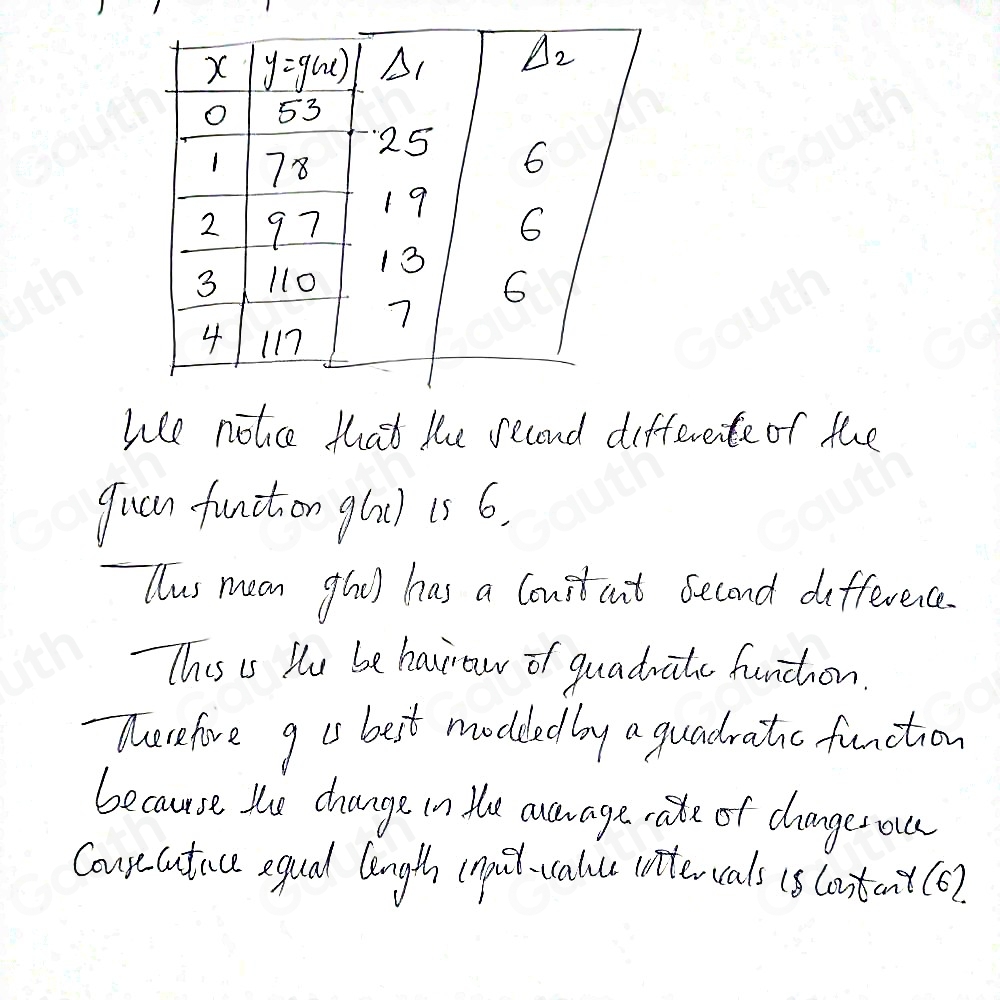 x y=g(x) Δ1 Δ2
0 53
25
1 78 6
19
2 97 6
13
3 110 6
7
4 117
We notice that the second difference of the
given function g(x) is 6.
This mean g(x) has a constant second difference.
This is the behaviour of quadratic function.
Therefore g is best modeled by a quadratic function
because the change in the average rate of changes over
Consecutive equal length input-value intervals is constant (6).
Gauth